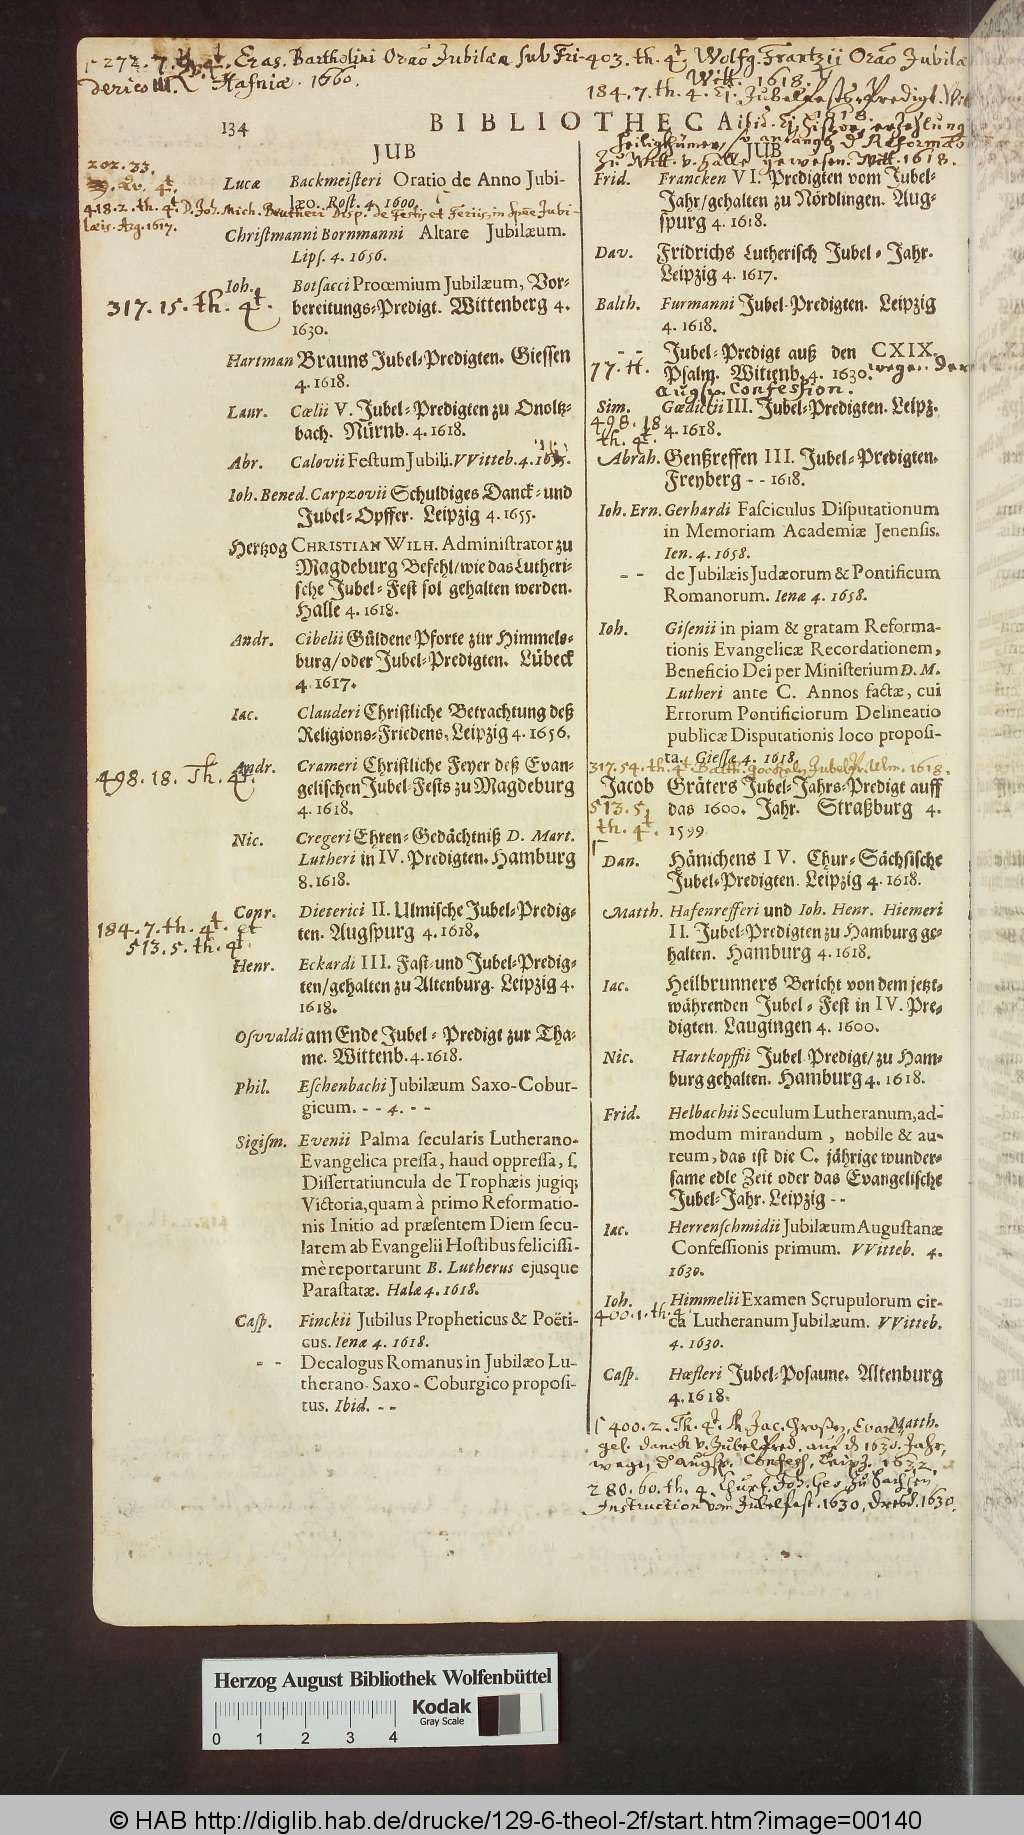 272.7. Eras. Bartholini Orao Jubilæa sub Fri-
derico III. Hafniæ. 1660.
403. th. 4t Wolfg. Frantzii Orao Jubilæ
Witt. 1618.
184. 7. th. 4.
134
BIBLIOTHECA
JUB
202. 33.
Lucæ Backmeisteri Oratio de Anno Jubi-
læo. Rost. 4. 1600.
418. 2. th. 4t. D. Joh. Mich. Beutheri Disp. de Festis et Feriis, in Spec Jubi-
læis. Arg. 1617.
Christmanni Bornmanni Altare Jubilæum.
Lips. 4. 1656.
Ioh. Botsacci Procemium Jubilæum, Vor-
317. 15. th. 4t.
bereitungs-Predigt. Wittenberg 4.
1630.
Hartman Brauns Jubel-Predigten. Giessen
4. 1618.
Laur. Cælii V. Jubel-Predigten zu Onoltz-
bach. Nürnb. 4. 1618.
Abr. Calovii Festum Jubili. VVitteb. 4. 1655.
Ioh. Bened. Carpzovii Schuldiges Danck-und
Jubel-Opffer. Leipzig 4. 1655.
Hertzog CHRISTIAN WILH. Administrator zu
Magdeburg Befehl/wie das Lutheri-
sche Jubel-Fest sol gehalten werden.
Halle 4. 1618.
Andr. Cibelii Güldene Pforte zur Himmels-
burg/oder Jubel-Predigten. Lübeck
4. 1617.
Iac. Clauderi Christliche Betrachtung deß
Religions-Friedens, Leipzig 4. 1656.
Andr. Crameri Christliche Feyer deß Evan-
498. 18. Th. 4t.
gelischen Jubel-Fests zu Magdeburg
4. 1618.
Nic. Cregeri Ehren-Gedächtniß D. Mart.
Lutheri in IV. Predigten. Hamburg
8. 1618.
Conr. Dieterici II. Ulmische Jubel-Predig-
184. 7. th. 4t. et
ten. Augspurg 4. 1618.
513. 5. th. 4t.
Henr. Eckardi III. Fast-und Jubel-Predig-
ten/gehalten zu Altenburg. Leipzig 4.
1618.
Osvvaldi am Ende Jubel-Predigt zur Tha-
me. Wittenb. 4. 1618.
Phil. Eschenbachi Jubilæum Saxo-Cobur-
gicum. - - 4. - -
Sigism. Evenii Palma secularis Lutherano-
Evangelica pressa, haud oppressa, s.
Dissertatiuncula de Trophæis jugiq;
Victoria, quam à primo Reformatio-
nis Initio ad præsentem Diem secu-
larem ab Evangelii Hostibus felicissi-
mè reportarunt B. Lutherus ejusque
Parastatæ. Halæ 4. 1618.
Casp. Finckii Jubilus Propheticus & Poëti-
cus. Ienæ 4. 1618.
- - Decalogus Romanus in Jubilæo Lu-
therano-Saxo-Coburgico proposi-
tus. Ibid. - -
JUB
zu Witt. v. Halle gewesen. Witt. 1618.
Frid. Francken VI. Predigten vom Jubel-
Jahr/gehalten zu Nördlingen. Aug-
spurg 4. 1618.
Dav. Fridrichs Lutherisch Jubel-Jahr.
Leipzig 4. 1617.
Balth. Furmanni Jubel-Predigten. Leipzig
4. 1618.
- - Jubel-Predigt auß den CXIX.
77. H.
Psalm. Wittenb. 4. 1630. wegen der
Augsp. Confession.
Sim. Gœdickii III. Jubel-Predigten. Leipz.
498. 18
4. 1618.
th. 4t.
Abrah. Genßreffen III. Jubel-Predigten.
Freyberg - - 1618.
Ioh. Ern. Gerhardi Fasciculus Disputationum
in Memoriam Academiæ Jenensis.
Ien. 4. 1658.
- - de Jubilæis Judæorum & Pontificum
Romanorum. Ienæ 4. 1658.
Ioh. Gisenii in piam & gratam Reforma-
tionis Evangelicæ Recordationem,
Beneficio Dei per Ministerium D. M.
Lutheri ante C. Annos factæ, cui
Errorum Pontificiorum Delineatio
publicæ Disputationis loco proposi-
ta. Giessæ 4. 1618.
317. 54. th. 4t Ulm. 1618.
Jacob Gräters Jubel-Jahrs-Predigt auff
513. 5.
das 1600. Jahr. Straßburg 4.
th. 4t.
1599
Dan. Hänichens IV. Chur-Sächsische
Jubel-Predigten. Leipzig 4. 1618.
Matth. Hafenrefferi und Ioh. Henr. Hiemeri
II. Jubel-Predigten zu Hamburg ge-
halten. Hamburg 4. 1618.
Iac. Heilbrunners Bericht von dem jetzt-
währenden Jubel-Fest in IV. Pre-
digten. Laugingen 4. 1600.
Nic. Hartkopffii Jubel Predigt/zu Ham-
burg gehalten. Hamburg 4. 1618.
Frid. Helbachii Seculum Lutheranum, ad-
modum mirandum, nobile & au-
reum, das ist die C. jährige wunder-
same edle Zeit oder das Evangelische
Jubel-Jahr. Leipzig - -
Iac. Herrenschmidii Jubilæum Augustanæ
Confessionis primum. VVitteb. 4.
1630.
Ioh. Himmelii Examen Scrupulorum cir-
400. 1. th. 4.
ca Lutheranum Jubilæum. VVitteb.
4. 1630.
Casp. Hœfleri Jubel-Posaune. Altenburg
4. 1618.
Matth.
400. 2. Th. 4t. Jac. Großen, Evan-
gel. danck v. Jubelfred. auf d 1630. Jahr,
wegen d Augsp. Confess. Leipz. 1632.
280. 60. th. 4. Churf. Joh. Geo. zu Sachsen
Instruction vom Jubelfest. 1630, Dresd. 1630.
Herzog August Bibliothek Wolfenbüttel
Kodak
Gray Scale
0 1 2 3 4
© HAB http://diglib.hab.de/drucke/129-6-theol-2f/start.htm?image=00140